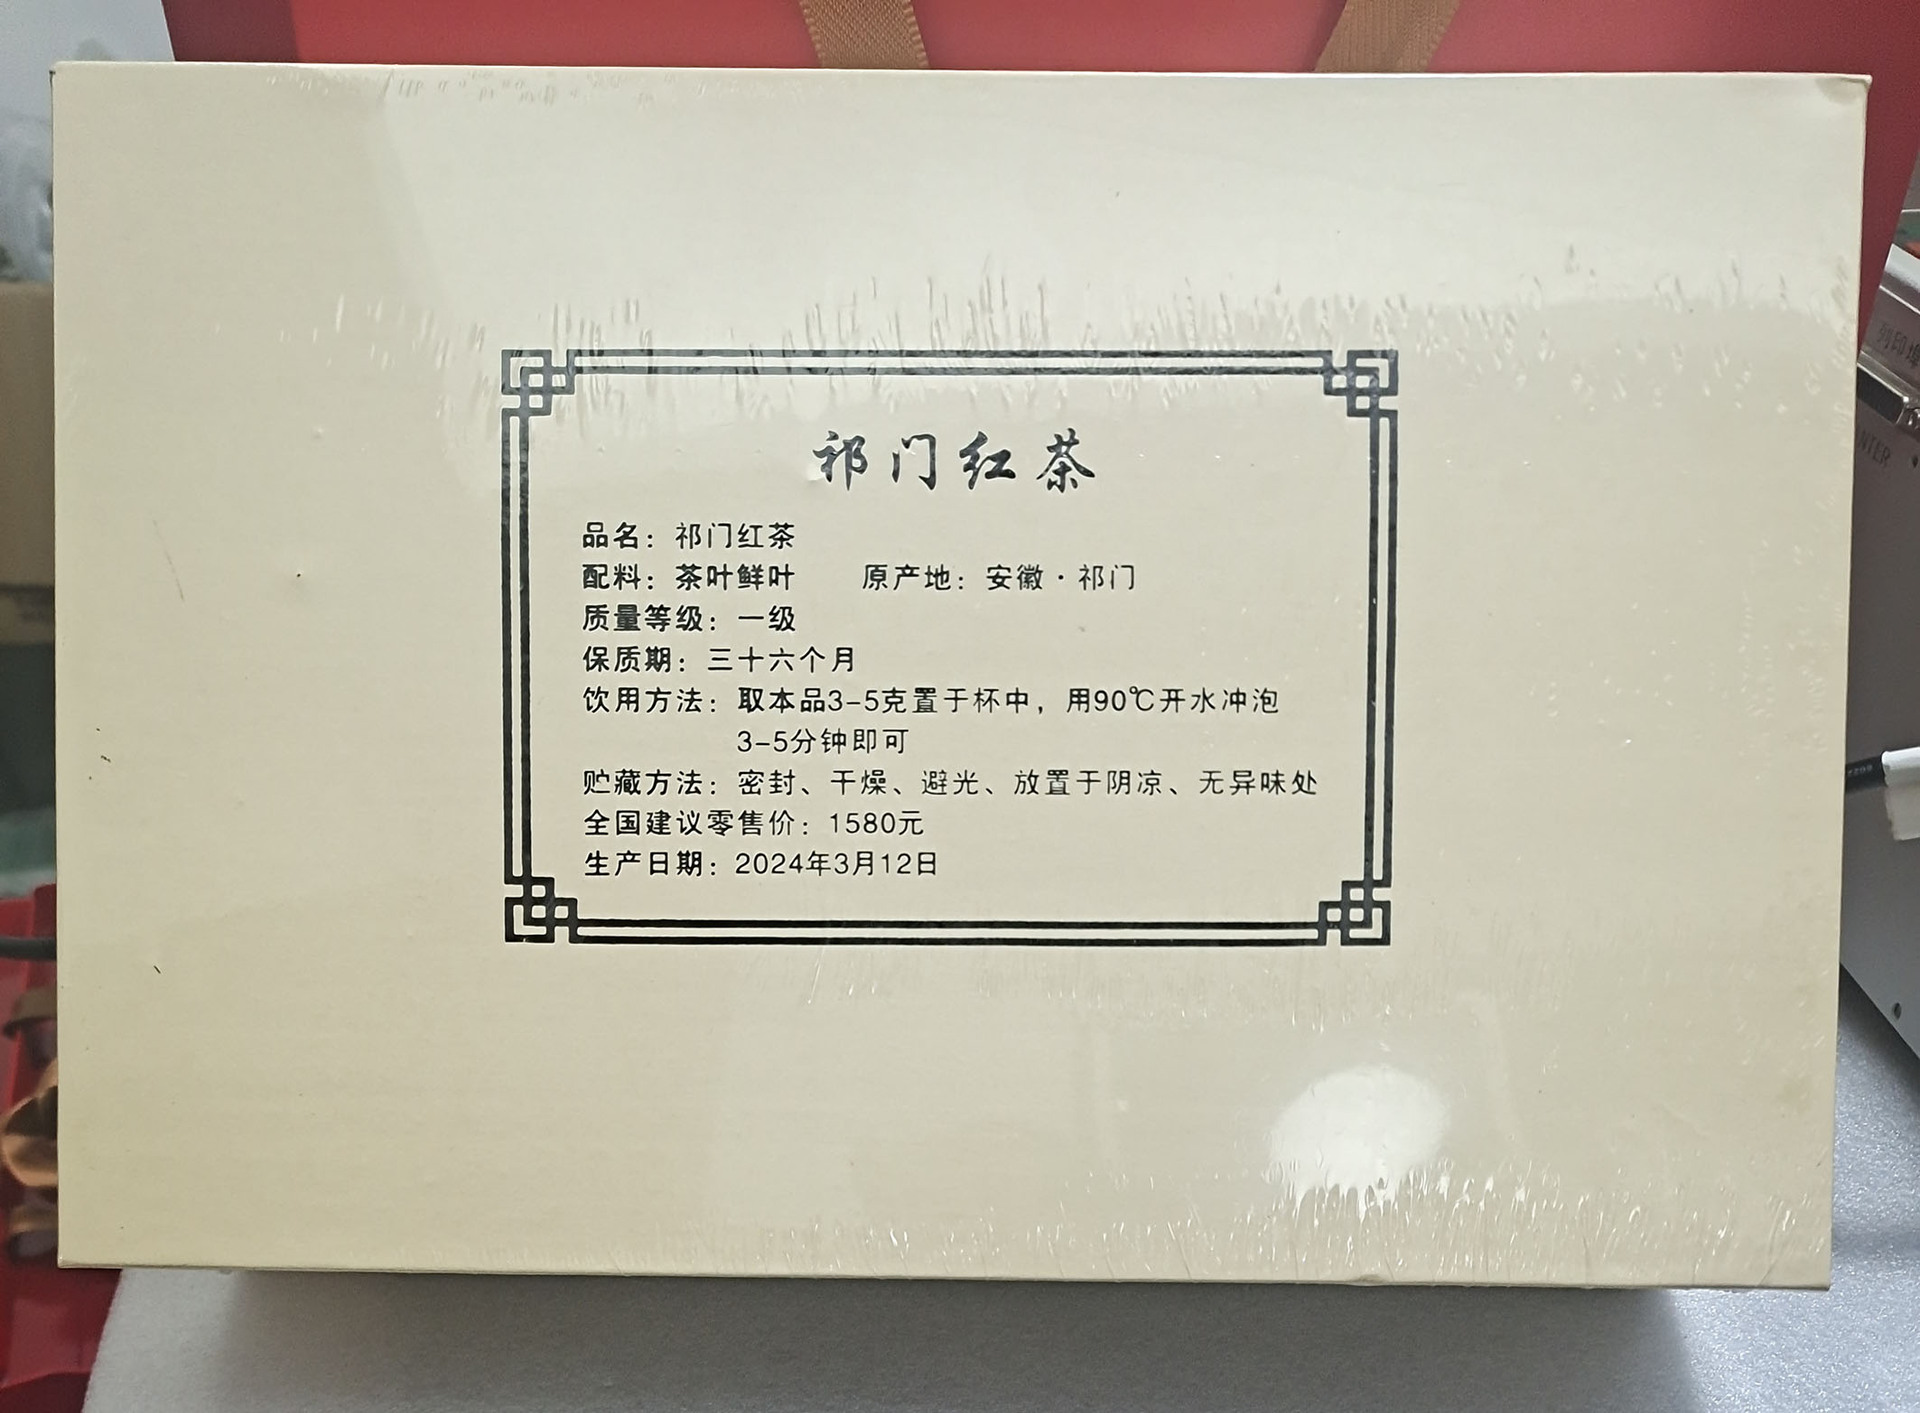 祁门红茶
品名：祁门红茶
配料：茶叶鲜叶 原产地：安徽·祁门
质量等级：一级
保质期：三十六个月
饮用方法：取本品3-5克置于杯中，用90℃开水冲泡
3-5分钟即可
贮藏方法：密封、干燥、避光、放置于阴凉、无异味处
全国建议零售价：1580元
生产日期：2024年3月12日